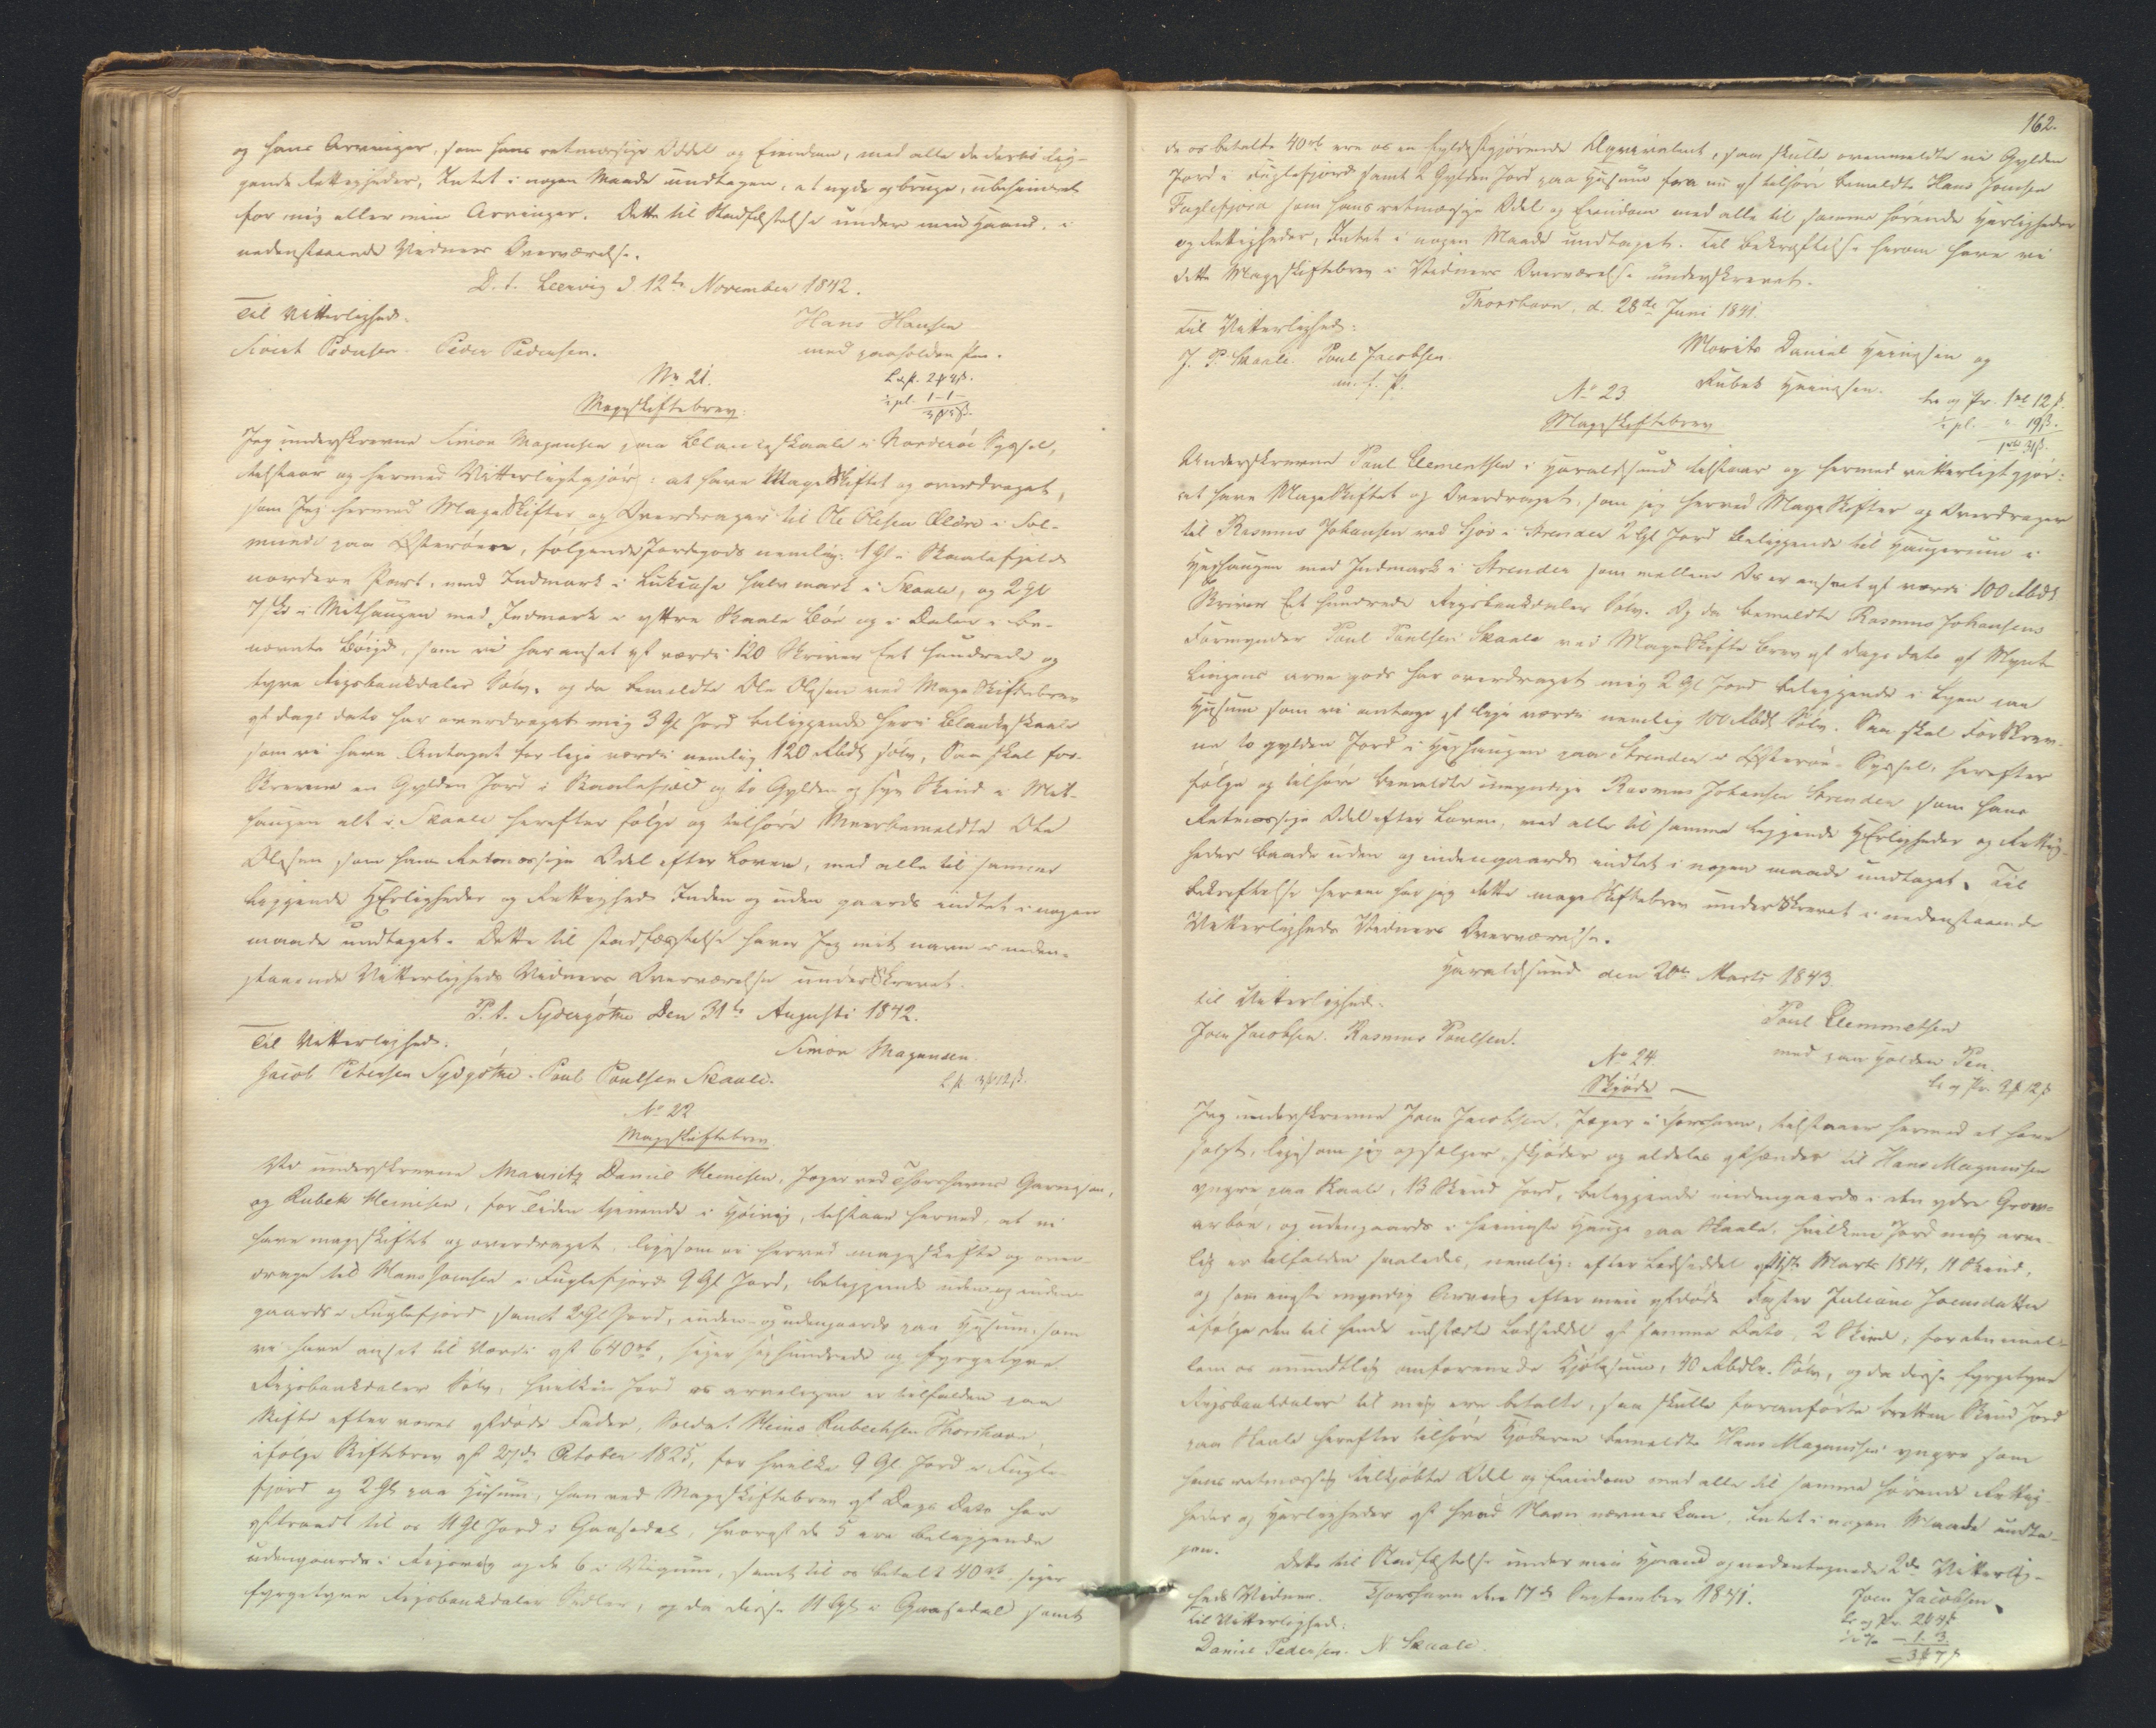 og hans Arvinger, som hans retmæssige Oddel og Eiendom, med alle de dertil lig-
gende Rettigheder, Intet i nogen Maade undtagen, at nyde og bruge, ubehindret
for mig eller mine Arvinger. Dette til Stadfæstelse under min Haand, i
nedenstaaende Vidners Overværelse.
P. t. Leervig d. 12te November 1842.
Til Vitterlighed.
Hans Hansen
Sivert Pedersen. Peder Pedersen.
med paaholden Pen.
No 21.
Magskiftebrev.
Jeg underskrevne Simon Magnussen paa Blankeskaale i Norderøe Syssel,
tilstaar og hermed Vitterligtgjør: at have MageSkiftet og overdraget,
som Jeg hermed MageSkifter og Overdrager til Ole Olesen Ældre i Sol-
munde paa Østerøen, følgende Jordegods nemlig: 1 Gl i Skaalefjeld
nordere Part, med Indmark i Lukeuse halv mark i Skaale, og 2 Gl
7 Sk i Mithaugen med Indmark i yttre Skaale Bøe og i Daler i be-
nævnte Bøigd, som vi har anset af værdi 120 Skriver Eet hundrede og
tyve Rigsbankdaler Sølv. og da bemeldte Ole Olesen ved MageSkiftebrev
af dags dato har overdraget mig 3 Gl Jord beliggende heri Blankeskaale
som vi have Antaget for lige værdi nemlig 120 Rbd Sølv, Saa skal for-
Skrevne en Gylden Jord i Skaalefjæld og to Gylden og syv Skind i Mit-
haugen alt i Skaale herefter følge og tilhøre Meerbemeldte Ole
Olesen som hans Retmæssige Odel efter Loven, med alle til samme
liggende HErligheder og Rettighed Inden og uden gaards intet i nogen
maade undtaget. Dette til stadfæstelse haver Jeg mit navn i neden-
staaende Vitterligheds Vidners Overværelse underSkrevet.
P. t. Sydergøthe Den 31te Augusti 1842.
Til Vitterlighed.
Simon Magnussen.
Jacob Petersen Sydgøthe. Poul Poulsen Skaale.
No 22
Mageskiftebrev
Vi underskrevne Mauritz Daniel Heinesen, Jæger ved Thorshavns Garnison,
og Rubek Heinesen, for Tiden tjenende i Høivig, tilstaae herved, at vi
have mageskiftet og overdraget, ligesom vi herved mageskifte og over-
drage til Hans Joensen i Fuglefjord 9 Gl Jord, beliggende uden og inden
gaards i Fuglefjord samt 2 Gl Jord, inden- og udengaards paa Husum, som
vi have anset til Værdi af 640 rb, siger sexhundrede og fyrgetyve
Rigsbankdaler Sølv, hvilken Jord os arveligen er tilfalden paa
Skifte efter vores afdøde Fader, Soldat Heine Rubechsen Thorshavn,
ifølge Skiftebrev af October 1825, for hvilke 9 Gl. Jord i Fugle-
fjord og 2 Gl paa Husum, han ved Mageskiftebrev af Dags Dato har
afstaaet til os 11 Gl Jord i Gaasedal, hvoraf de 5 ere beliggende
udengaards i og de 6 i samt til os betalt 40 rb siger
fyrgetyve Rigsbankdaler Sedler, og da disse 11 Gl i Gaasedal samt
162.
de os betalte 40 rb ere os en fyldestgjørende Æqvivalent, saa skulle ovenmeldte ni Gylden
Jord i Fuglefjord samt 2 Gylden Jord paa Husum fra nu af tilhøre bemeldte Hans Joensen
Fuglefjord som hans retmæssige Odel og Eiendom med alle til samme hørende Herligheder
og Rettigheder, Intet i nogen Maade undtaget. Til Bekræftelse herom have vi
dette Mageskiftebrev i Vidners Overværelse underskrevet.
Thorshavn, d. 28de Juni 1841.
Til Vitterlighed:
Morits Daniel Heinesen og
J. P. Skaale. Poul Jacobsen
Rubek Heinesen.
m. f. P.
No 23
Mageskiftebrev
Underskrevne Poul Clementsen i Haraldsund tilstaar og hermed vitterligtgjør:
at have MageSkiftet og Overdraget, som jeg herved MageSkifter og Overdrager
til Rasmus Johansen ved Sjov i Strender 2 Gl Jord beliggende til i
Hushaugen med Indmark i Strender som mellem Os er anset af værdi 100 Rbd
Skriver Et hundrede Rigsbankdaler Sølv. Og da bemeldte Rasmus Johansens
Formynder Poul Poulsen Skaale ved MageSkifte Brev af dags dato af Mynt-
lingens arve gods har overdraget mig 2 Gl Jord beliggende i Byen paa
Husum som vi antage af lige værdi nemlig 100 Rbd Sølv. Saa skal forSkrev-
ne to gylden Jord i Hushaugen paa Strender i Østerøe-Syssel, herefter
følge og tilhøre bemeldte umyndige Rasmus Johansen Strender som hans
Retmæssige Odel efter Loven, med alle til samme liggende HErligheder og Rettig-
heder baade uden og indengaards intet i nogen maade undtaget. Til
bekræftelse herom har jeg dette mageSkiftebrev underSkrevet i nedenstaaende
Vitterligheds Vidners Overværelse.
Haraldsund den 20de Marts 1843
til Vitterlighed.
Poul Clemmetsen
Joen Jacobsen. Rasmus Poulsen.
med paa holden Pen.
No 24.
Skjøde
Jeg underskrevne Joen Jacobsen, Jæger i Thorshavn, tilstaaer hermed at have
solgt, ligesom jeg og sælger, skjøder og aldeles afhænder til Hans Magnussen
yngre paa Skaale, 13 Skind Jord, beliggende indengaards i den ydre Grom-
arbøe, og udengaards i Hauge paa Skaale, hvilken Jord mig arve-
lig er tilfalden saaledes, nemlig: efter Lodseddel af Marts 1814, 11 Skind,
og som eneste myndig Arving efter min afdøde Søster Juliane Joensdatter
ifølge den til hende udstædte Lodseddel af samme Dato, 2 Skind, for den imel-
lem os mundtlig omforenede Kjøbesum, 40 Rbdlr. Sølv, og da disse fyrgetyve
Rigsbankdaler til mig ere betalte, saa skulle foranførte tretten Skind Jord
paa Skaale herefter tilhøre Kjøberen bemeldte Hans Magnussen yngre som
hans retmæssig tilkjøbte Odel og Eiendom med alle til samme hørende Rettig-
heder og Herligheder af hvad Navn nævnes kan, Intet i nogen Maade undta-
gen.
Dette til Stadfæstelse under min Haand og nedentegnede 2de Vitterlig-
heds Vidner. Thorshavn den 17de September 1841.
Joen Jacobsen
Til Vitterlighed:
Daniel Pedersen. N. Skaale.